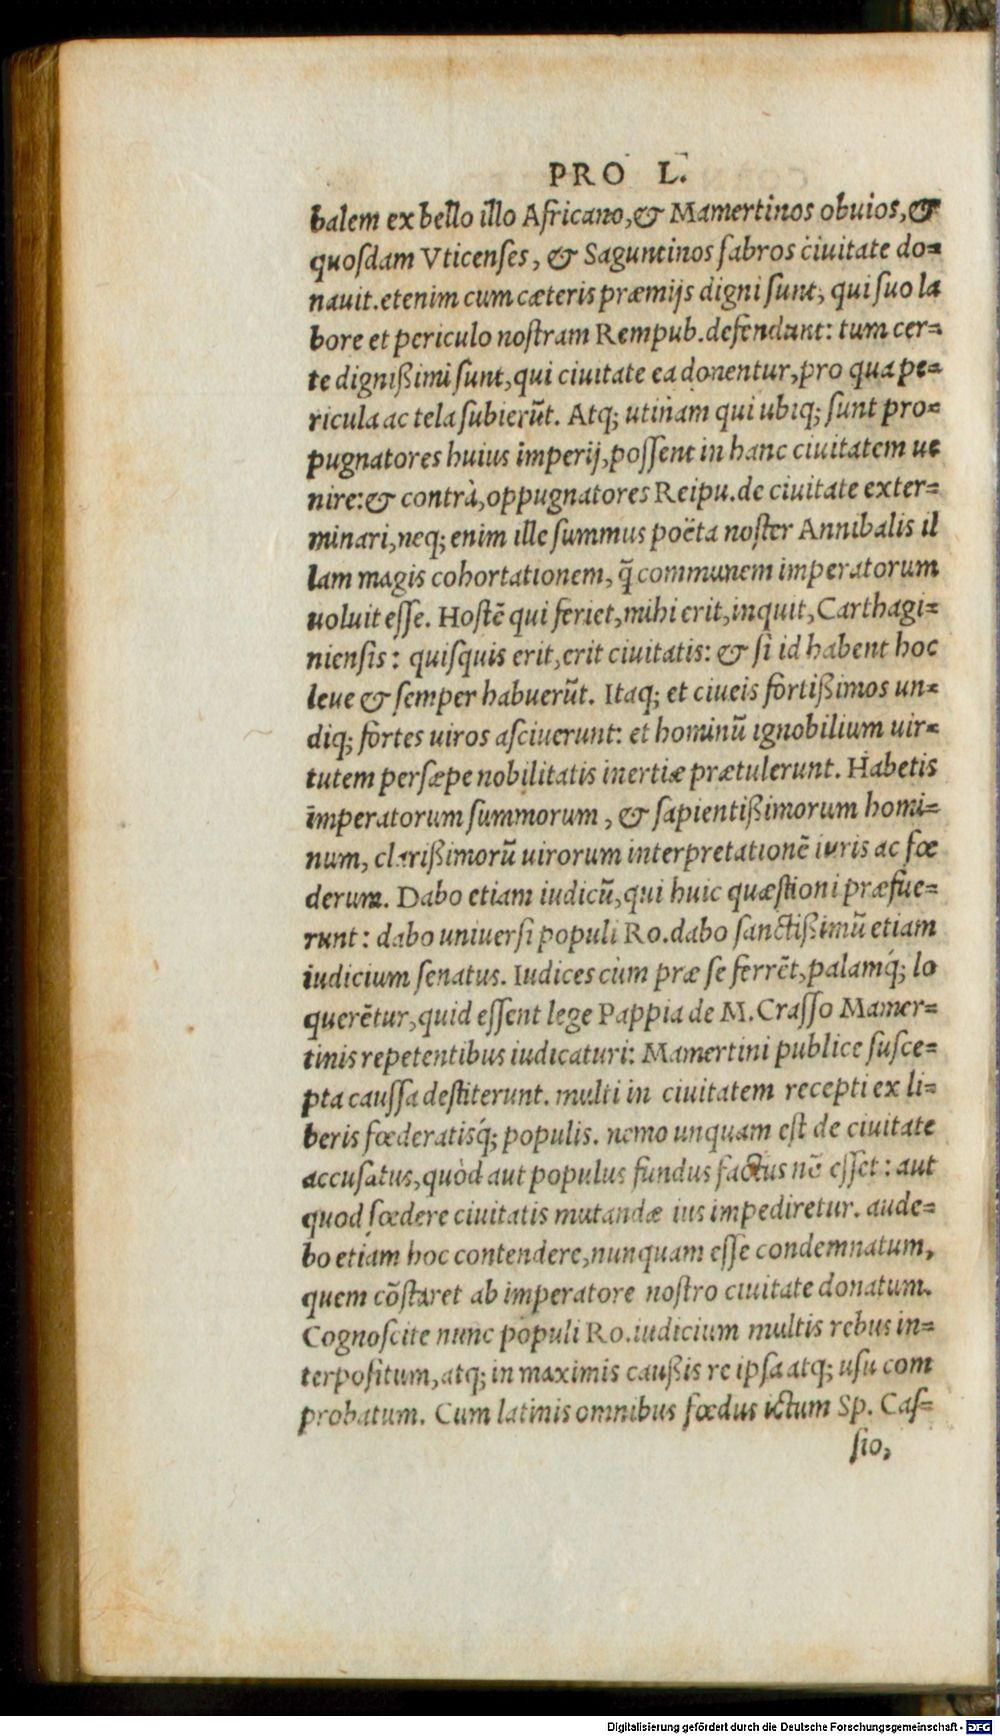 PRO L.
balem ex bello illo Africano,& Mamertinos obuios,&
quosdam Vticenses, & Saguntinos fabros ciuitate do=
nauit.etenim cum cæteris præmijs digni sunt, qui suo la
bore et periculo nostram Rempub.defendunt: tum cer=
te dignißimi sunt,qui ciuitate ea donentur,pro qua pe=
ricula ac tela subierūt. Atq; utinam qui ubiq; sunt pro=
pugnatores huius imperij,possent in hanc ciuitatem ue
nire:& contrà,oppugnatores Reipu.de ciuitate exter=
minari,neq; enim ille summus poëta noster Annibalis il
lam magis cohortationem, q̃ communem imperatorum
uoluit esse. Hostẽ qui feriet,mihi erit,inquit,Carthagi=
niensis: quisquis erit,erit ciuitatis: & si id habent hoc
leue & semper habuerūt. Itaq; et ciueis fortißimos un=
diq; fortes uiros asciuerunt: et hominū ignobilium uir=
tutem persæpe nobilitatis inertiæ prætulerunt. Habetis
imperatorum summorum, & sapientißimorum homi=
num, clarißimorū uirorum interpretationẽ iuris ac fœ
derum. Dabo etiam iudicū,qui huic quæstioni præfue=
runt: dabo uniuersi populi Ro.dabo sanctißimū etiam
iudicium senatus. Iudices cùm præ se ferrẽt,palamq́; lo
querẽtur,quid essent lege Pappia de M.Crasso Mamer=
tinis repetentibus iudicaturi: Mamertini publice susce=
pta caussa destiterunt. multi in ciuitatem recepti ex li=
beris fœderatisq́; populis. nemo unquam est de ciuitate
accusatus,quòd aut populus fundus factus nõ esset: aut
quod fœdere ciuitatis mutandæ ius impediretur. aude=
bo etiam hoc contendere,nunquam esse condemnatum,
quem cõstaret ab imperatore nostro ciuitate donatum.
Cognoscite nunc populi Ro.iudicium multis rebus in=
terpositum,atq; in maximis caußis re ipsa atq; usu com
probatum. Cum latinis omnibus fœdus ictum Sp. Cas=
sio,
Digitalisierung gefördert durch die Deutsche Forschungsgemeinschaft - DFG